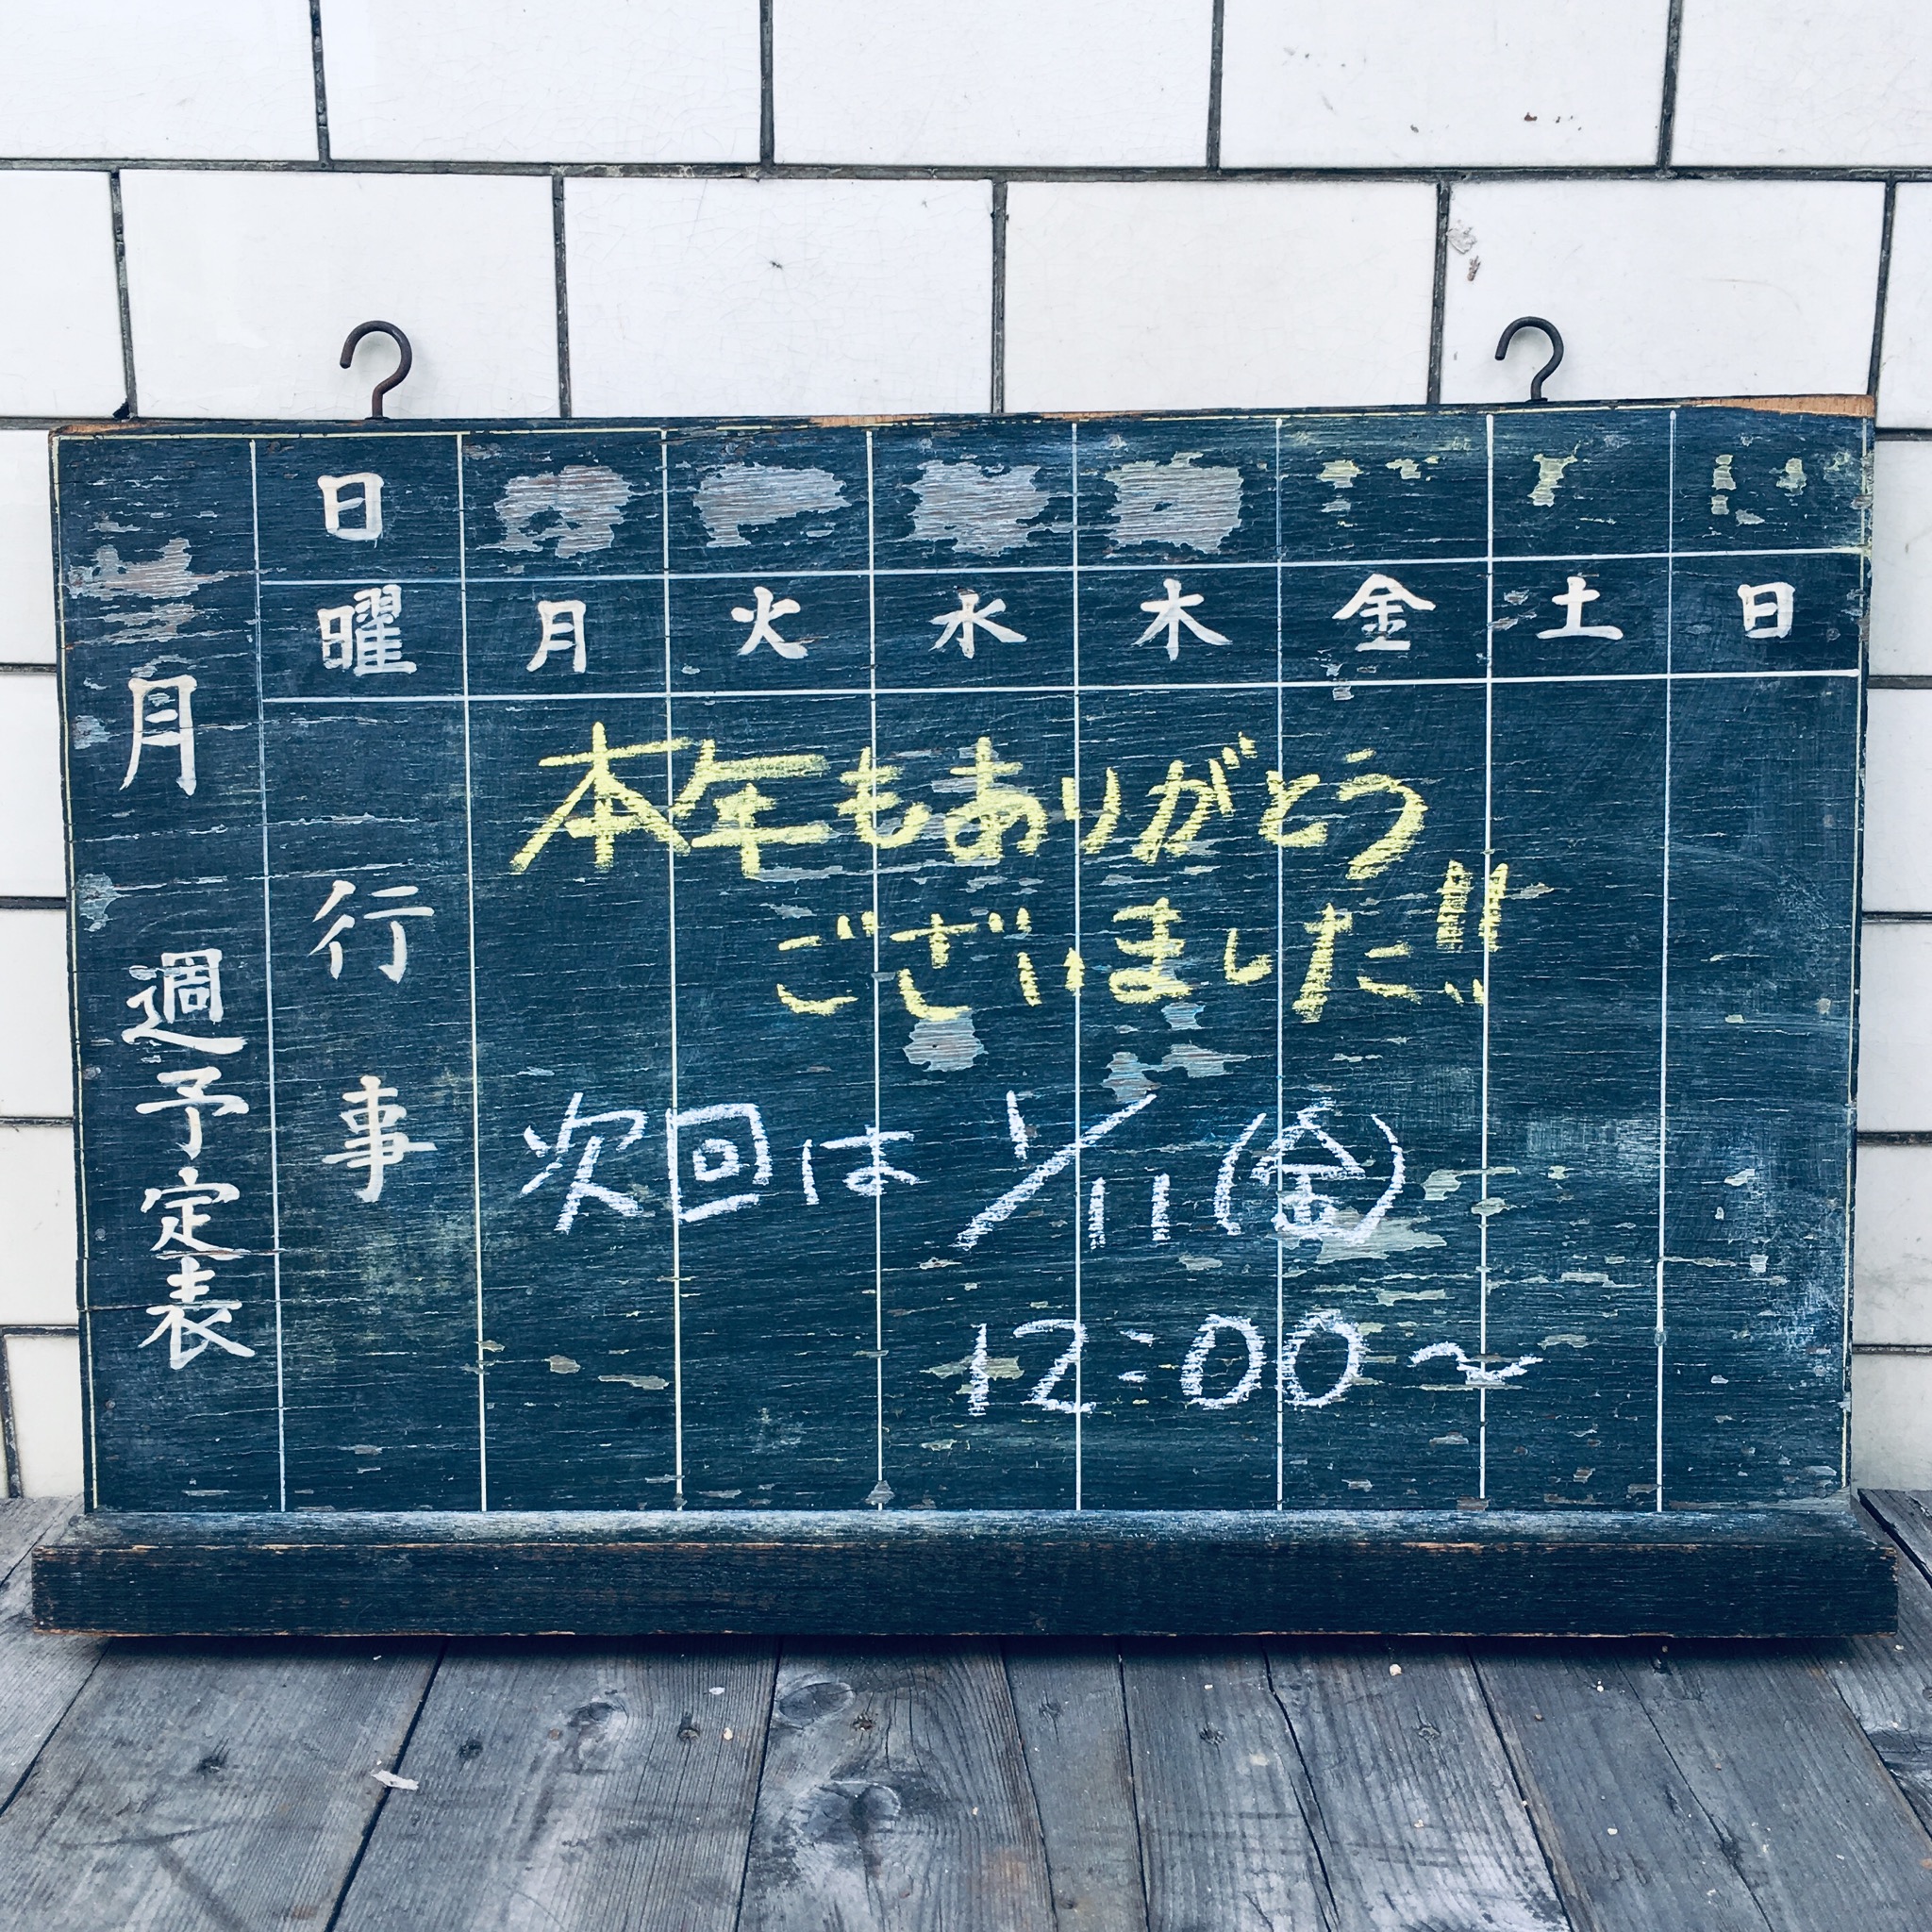 月 週予定表
日
曜 月 火 水 木 金 土 日
行事
本年もありがとう
ございました!!
次回は 1/11(金)
12:00~